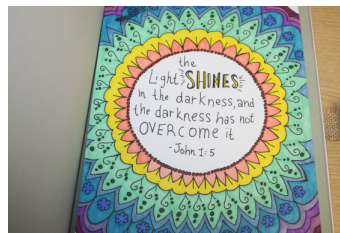 the
Light SHINES
in the darkness, and
the darkness has not
OVERCOME it
-John 1:5